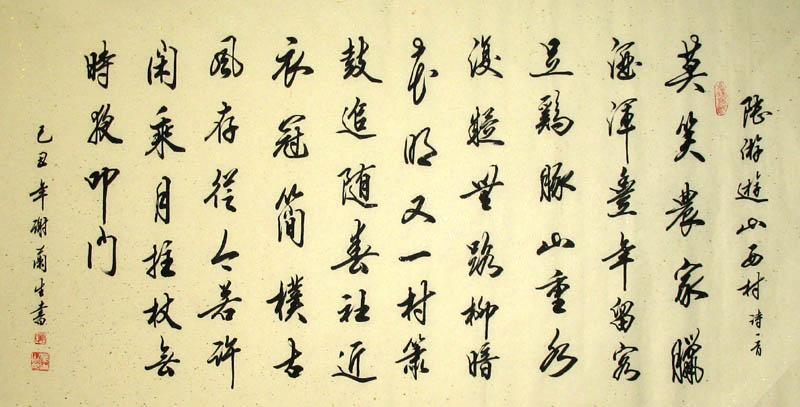 陸游遊山西村诗一首
莫笑農家臘
酒渾豊年留客
足鷄豚山重水
復疑無路柳暗
花明又一村簫
鼓追随春社近
衣冠簡樸古
風存從今若許
閑乘月拄杖無
時夜叩门
己丑年謝蘭生書